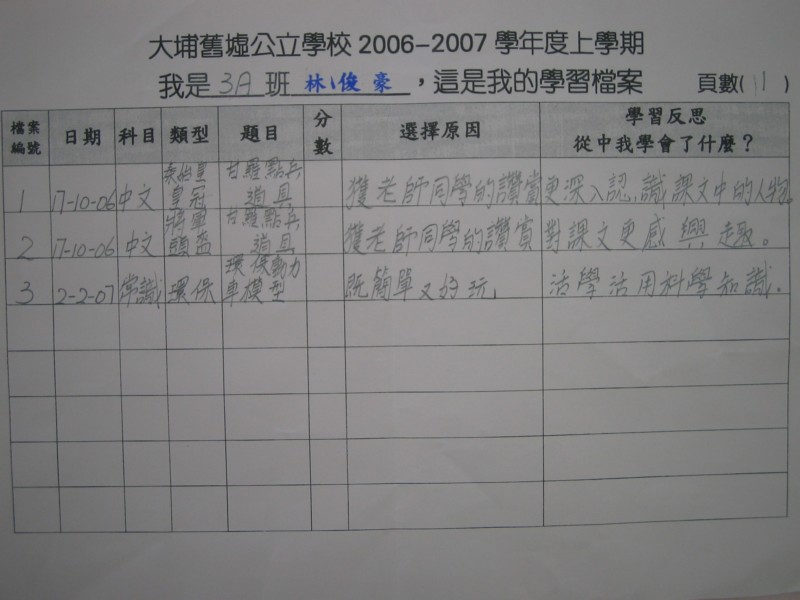 大埔舊墟公立學校 2006-2007 學年度上學期
我是 3A 班 林俊豪，這是我的學習檔案 頁數( 1 )
檔案編號 日期 科目 類型 題目 分數 選擇原因 學習反思 從中我學會了什麼？
1 17-10-06 中文 秦始皇皇冠 甘羅點兵道具 獲老師同學的讚賞 更深入認識課文中的人物。
2 17-10-06 中文 將軍頭盔 甘羅點兵道具 獲老師同學的讚賞 對課文更感興趣。
3 2-2-07 常識 環保 環保動力車模型 既簡單又好玩 活學活用科學知識。